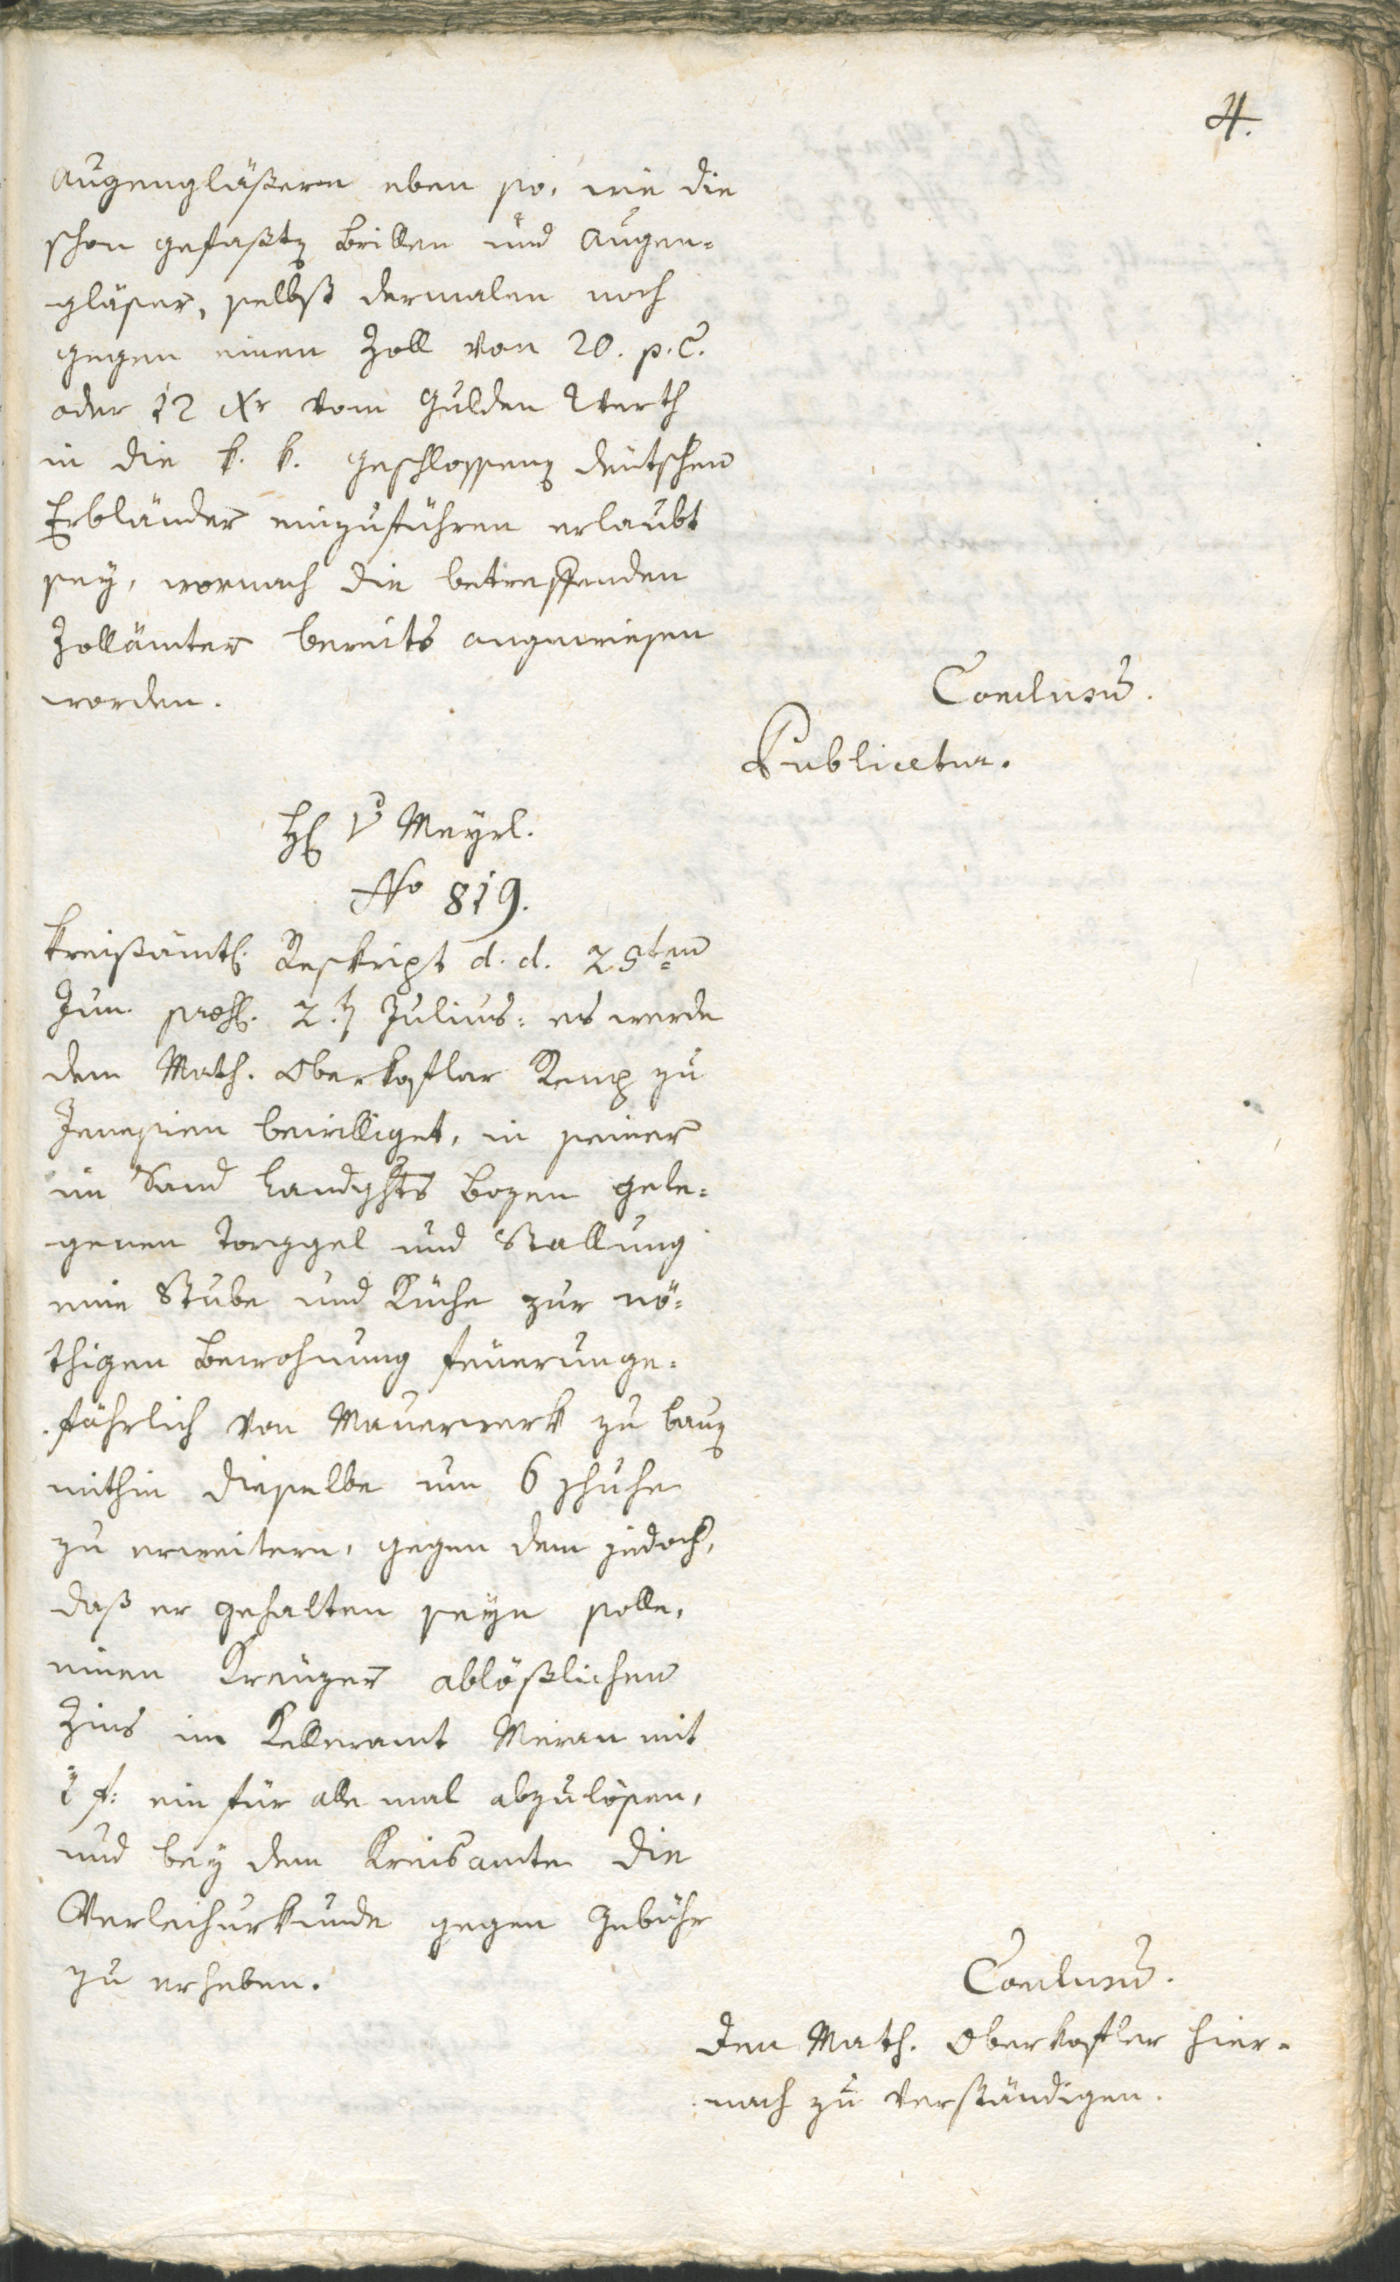 4.
Augengläßern eben so, wie die
schon gefaßten Brillen und Augen-
gläser, selbst dermalen noch
gegen einen Zoll von 20. p. C.
oder 12 Xr vom Gulden Werth
in die k. k. geschlossenen deutschen
Erbländer einzuführen erlaubt
sey, wornach die betreffenden
Zollämter bereits angewiesen
worden.
Conclusum.
Publicetur.
H. v Mayrl.
No 819.
Kreißämtl. Reskript d. d. 28ten
Jun. praes. 2.ten Julius: es werde
dem Math. Oberkofler zu
Jenesien bewilliget, in seiner
im Sand Landghts Bozen gele-
genen Torggel und Stallung
eine Stube und Küche zur nö-
thigen Bewohnung feuerunge-
fährlich von Mauerwerk zu bauen
mithin dieselbe um 6 Schuhe
zu erweitern, gegen dem jedoch,
daß er gehalten seyn solle,
einen Kreuzer ablößlichen
Zins im Kelleramt Meran mit
1 f: ein für alle mal abzulösen,
und bey dem Kreisamte die
Verleihurkunde gegen Gebühr
zu erheben.
Conclusum.
Den Math. Oberkofler hier-
nach zu verständigen.